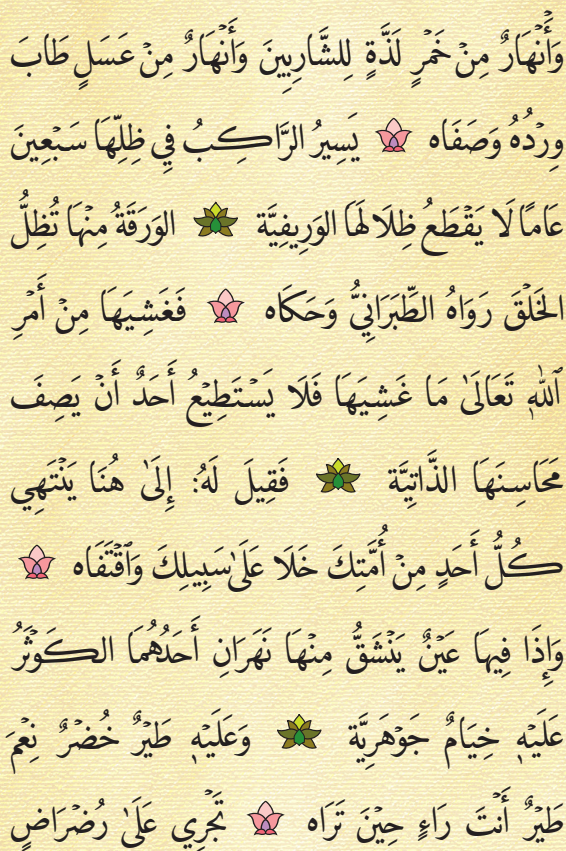 وَأَنْهَارٌ مِنْ خَمْرٍ لَذَّةٍ لِلشَّارِبِينَ وَأَنْهَارٌ مِنْ عَسَلٍ طَابَ
وِرْدُهُ وَصَفَاه يَسِيرُ الرَّاكِبُ فِي ظِلِّهَا سَبْعِينَ
عَامًا لَا يَقْطَعُ ظِلَالَهَا الوَرِيفِيَّة الوَرَقَةُ مِنْهَا تُظِلُّ
الخَلْقَ رَوَاهُ الطَّبَرَانِيُّ وَحَكَاه فَغَشِيَهَا مِنْ أَمْرِ
ٱللهِ تَعَالَىٰ مَا غَشِيَهَا فَلَا يَسْتَطِيْعُ أَحَدٌ أَنْ يَصِفَ
مَحَاسِنَهَا الذَّاتِيَّة فَقِيلَ لَهُ: إِلَىٰ هُنَا يَنْتَهِي
كُلُّ أَحَدٍ مِنْ أُمَّتِكَ خَلَا عَلَىٰ سَبِيلِكَ وَٱقْتَفَاه
وَإِذَا فِيهَا عَيْنٌ يَنْشَقُّ مِنْهَا نَهَرَانِ أَحَدُهُمَا الكَوْثَرُ
عَلَيْهِ خِيَامٌ جَوْهَرِيَّة وَعَلَيْهِ طَيْرٌ خُضْرٌ نِعْمَ
طَيْرٌ أَنْتَ رَاءٍ حِيْنَ تَرَاه تَجْرِي عَلَىٰ رُضْرَاضٍ